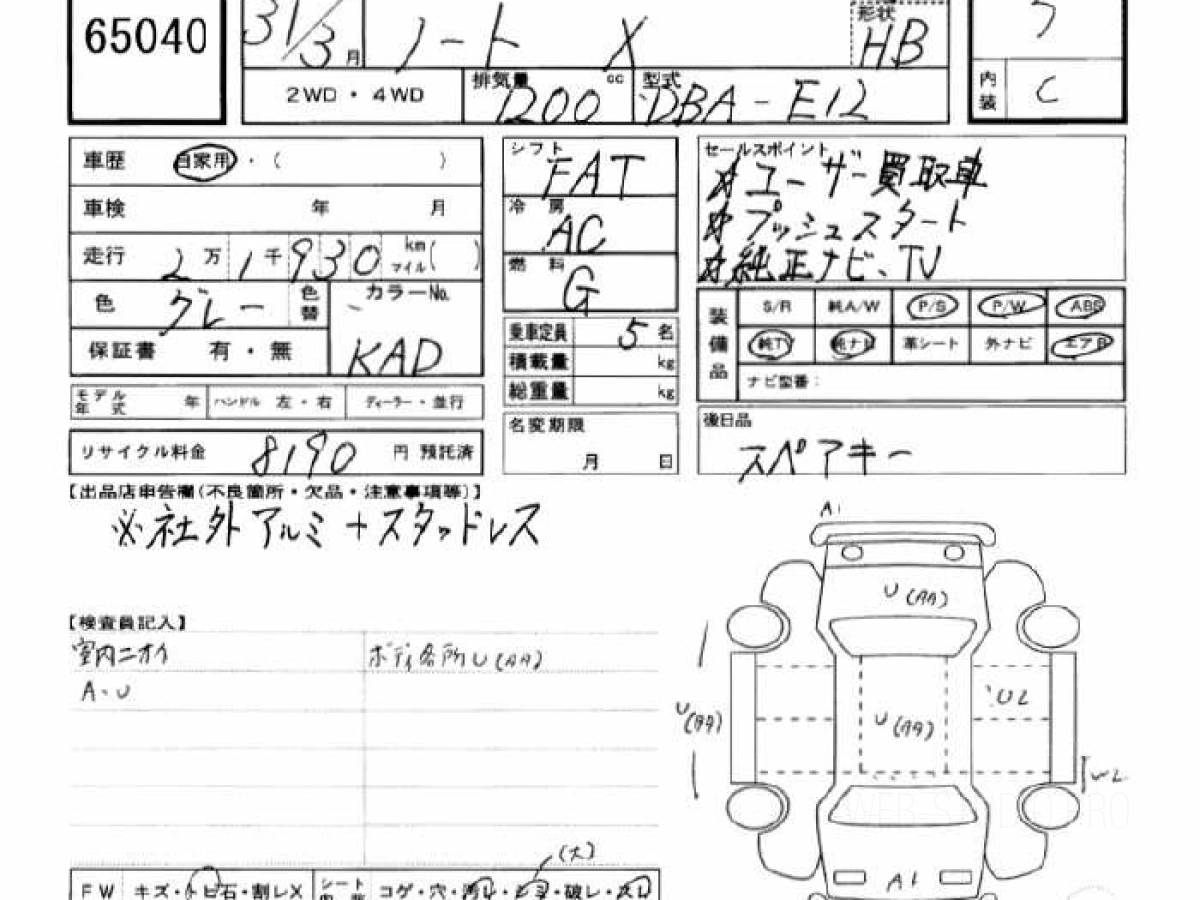 65040
31/3月
ノート X
形状 HB
2WD・4WD
排気量 1200 cc
型式 DBA-E12
内装 C
車歴 自家用・( )
車検 年 月
走行 2万1千930 km マイル( )
色 グレー 色替
カラーNo. KAD
保証書 有・無
モデル年式 年 ハンドル 左・右 ディーラー・並行
リサイクル料金 8190 円 預託済
シフト FAT
冷房 AC
燃料 G
乗車定員 5 名
積載量 kg
総重量 kg
名変期限
月 日
セールスポイント
※ユーザー買取車
※プッシュスタート
※純正ナビ、TV
装備品
S/R 純A/W P/S P/W ABS
純TV 純ナビ 革シート 外ナビ エアB
ナビ型番：
後日品
スペアキー
【出品店申告欄(不良箇所・欠品・注意事項等)】
※社外アルミ+スタッドレス
【検査員記入】
室内ニオイ
A・U
ボディ各所U(AA)
A1
U(AA)
U(AA)
UL
U(AA)
WL
A1
(大)
FW キズ・トビ石・割レX シート内張 コゲ・穴・汚レ・シミ・破レ・スレ